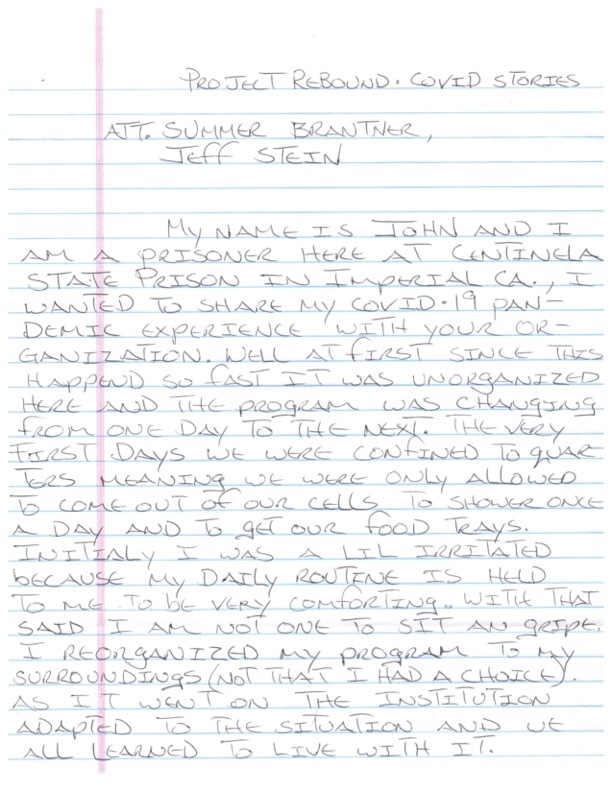 PROJECT REBOUND. COVID STORIES
ATT. SUMMER BRANTNER,
JEFF STEIN
MY NAME IS JOHN AND I
AM A PRISONER HERE AT CENTINELA
STATE PRISON IN IMPERIAL CA., I
WANTED TO SHARE MY COVID.19 PAN-
DEMIC EXPERIENCE WITH YOUR OR-
GANIZATION. WELL AT FIRST SINCE THIS
HAPPEND SO FAST IT WAS UNORGANIZED
HERE AND THE PROGRAM WAS CHANGING
FROM ONE DAY TO THE NEXT. THE VERY
FIRST DAYS WE WERE CONFINED TO QUAR
TERS MEANING WE WERE ONLY ALLOWED
TO COME OUT OF OUR CELLS TO SHOWER ONCE
A DAY AND TO GET OUR FOOD TRAYS.
INITIALY I WAS A LIL IRRITATED
BECAUSE MY DAILY ROUTINE IS HELD
TO ME TO BE VERY COMFORTING. WITH THAT
SAID I AM NOT ONE TO SIT AN GRIPE.
I REORGANIZED MY PROGRAM TO MY
SURROUNDINGS (NOT THAT I HAD A CHOICE).
AS IT WENT ON THE INSTITUTION
ADAPTED TO THE SITUATION AND WE
ALL LEARNED TO LIVE WITH IT.